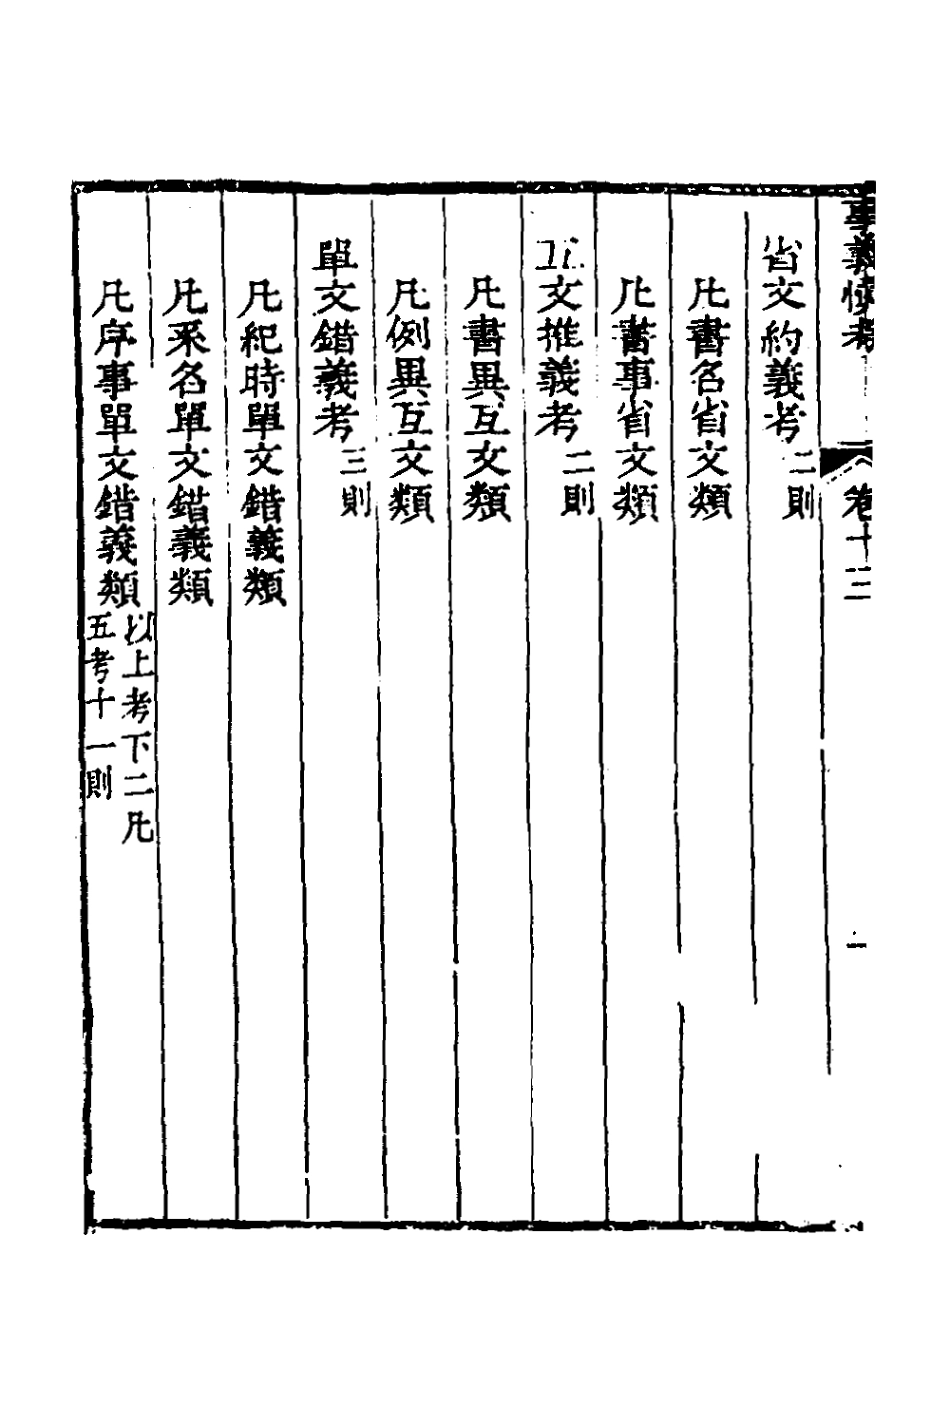 事義慎考　卷十三　一
省文約義考二則
凡書名省文類
凡書事省文類
互文推義考二則
凡書異互文類
凡例異互文類
單文錯義考三則
凡紀時單文錯義類
凡系名單文錯義類
凡序事單文錯義類
以上考下二凡
五考十一則